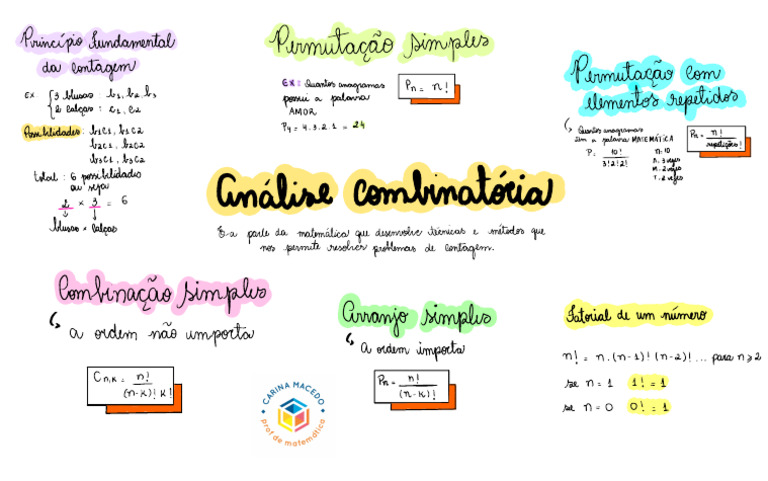 Princípio fundamental
da contagem
Ex. { 3 blusas : b1, b2, b3
2 calças : c1, c2
Possibilidades: b1c1, b1c2
b2c1, b2c2
b3c1, b3c2
total : 6 possibilidades
ou seja
2 × 3 = 6
blusas × calças
Permutação simples
EX: Quantos anagramas
possui a palavra
AMOR
P4 = 4.3.2.1 = 24
Pn = n!
Permutação com
elementos repetidos
Quantos anagramas
tem a palavra MATEMÁTICA
P = 10! / 3!2!2!
n: 10
A: 3 vezes
M: 2 vezes
T: 2 vezes
Pn = n! / repetições!
análise combinatória
É a parte da matemática que desenvolve técnicas e métodos que
nos permite resolver problemas de contagem.
Combinação simples
a ordem não importa
Cn,k = n! / (n-k)! k!
CARINA MACEDO
prof de matemática
Arranjo simples
A ordem importa
Pn = n! / (n-k)!
Fatorial de um número
n! = n.(n-1)!(n-2)! ... para n ⩾ 2
se n = 1 1! = 1
se n = 0 0! = 1